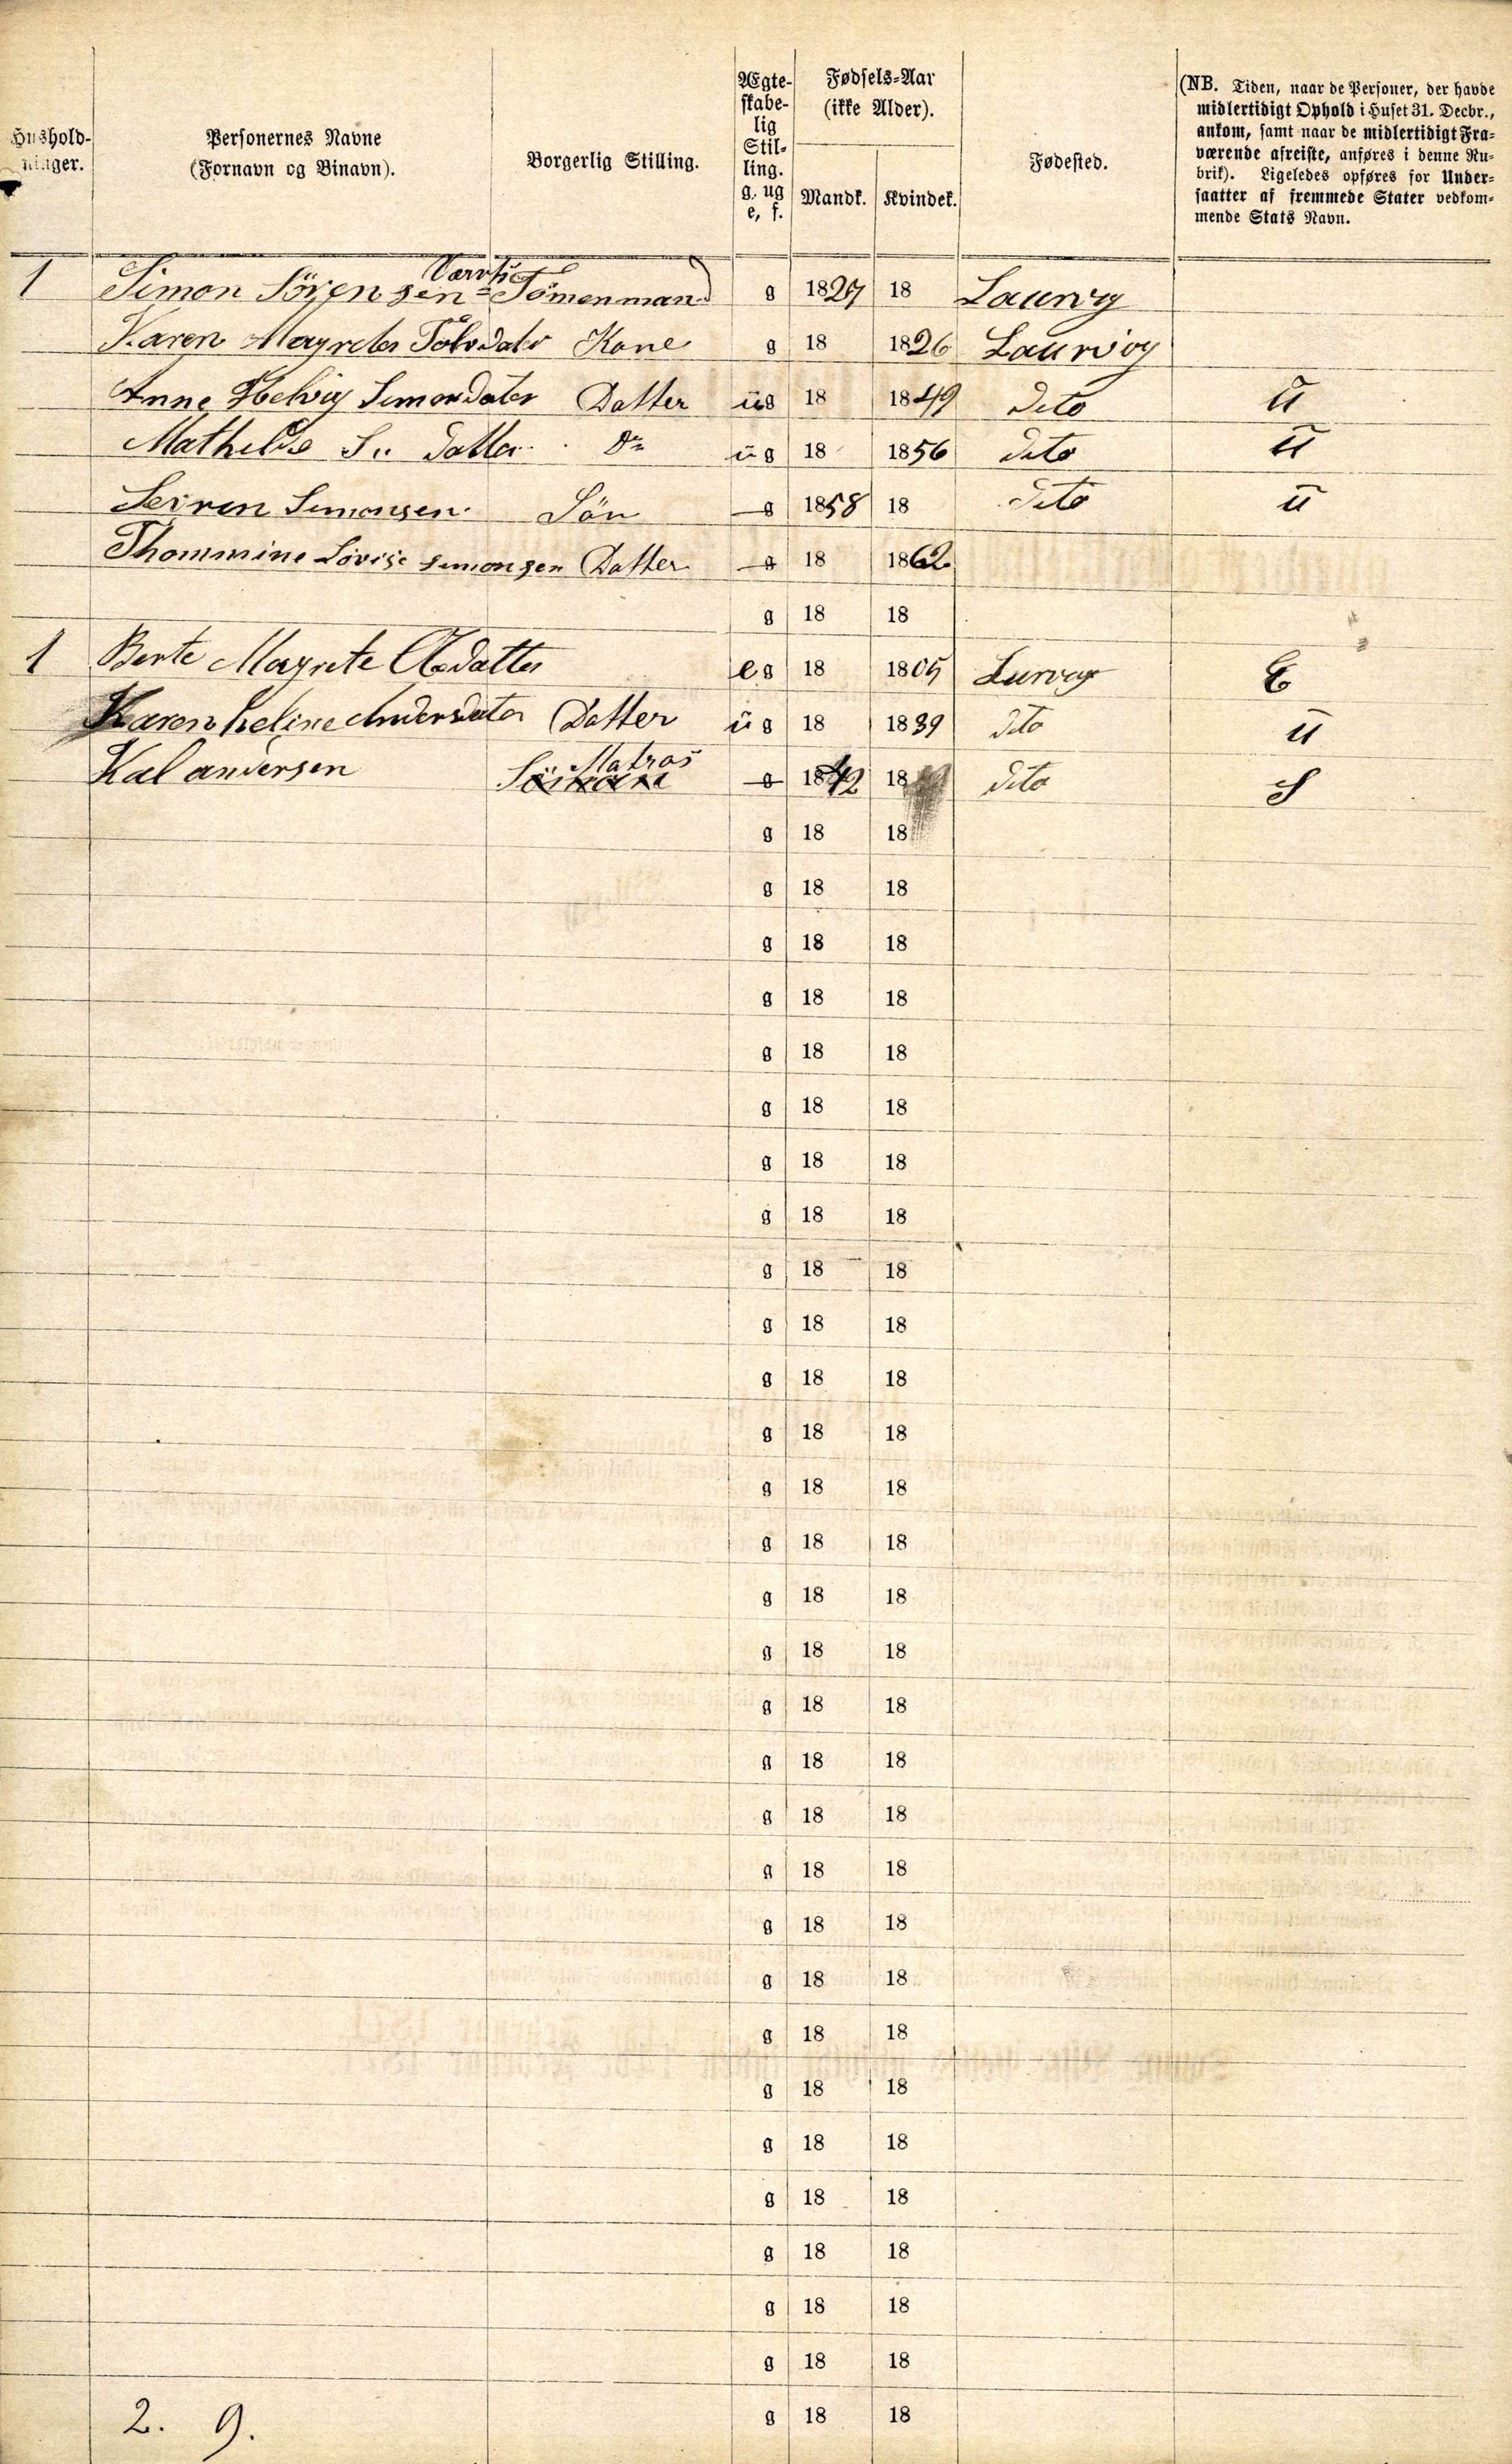 Hushold-
ninger.
Personernes Navne
(Fornavn og Binavn).
Borgerlig Stilling.
Ægte-
skabe-
lig
Stil-
ling.
g. ug
e, f.
Fødsels-Aar
(ikke Alder).
Mandk. Kvindek.
Fødested.
(NB. Tiden, naar de Personer, der havde
midlertidigt Ophold i Huset 31. Decbr.,
ankom, samt naar de midlertidigt Fra-
værende afreiste, anføres i denne Ru-
brik). Ligeledes opføres for Under-
saatter af fremmede Stater vedkom-
mende Stats Navn.
1 Simon Sörensen Tömenmand g 1827 18 Laurvig
Karen Magrete Kone g 18 1826 Laurvig
Anne Helvig Simondater Datter ug 18 1849 dito u
Mathilde S.. datter Do ug 18 1856 dito u
Simonsen Sön g 1858 18 dito u
Thommine Lovise Simonsen Datter g 18 1862
g 18 18
1 Berte Magrete eg 18 1805 Lurvig E
Karen heline Andersdater Datter ug 18 1839 dito u
Kal andersen Sömand Matros g 1842 18 dito S
g 18 18
g 18 18
g 18 18
g 18 18
g 18 18
g 18 18
g 18 18
g 18 18
g 18 18
g 18 18
g 18 18
g 18 18
g 18 18
g 18 18
g 18 18
g 18 18
g 18 18
g 18 18
g 18 18
g 18 18
g 18 18
g 18 18
g 18 18
g 18 18
g 18 18
g 18 18
g 18 18
g 18 18
g 18 18
g 18 18
2. 9.